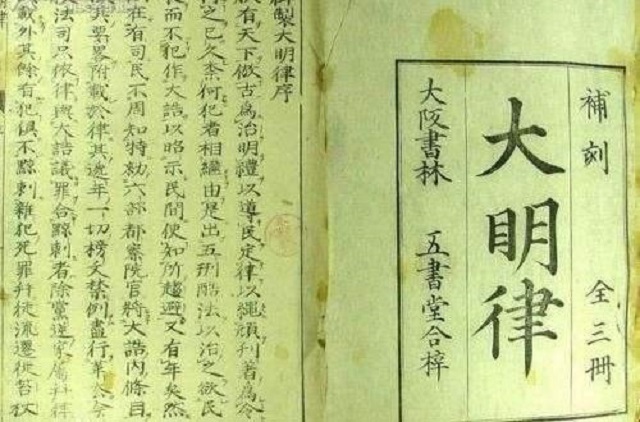 補刻 全三冊
大明律
大阪書林 五書堂合梓
御製大明律序
朕有天下倣古為治明禮以導民定律以繩頑刊著為令
行之已久奈何犯者相繼由是出五刑酷法以治之欲民
畏而不犯作大誥以昭示民間使知所趨避又有年矣然
在有司民不周知特勅六部都察院官將大誥內條目
其要畧附載於律其遞年一切榜文禁例盡行革去今
法司只依律與大誥議罪合黥刺者除黨逆家屬幷律
載外其餘有犯俱不黥刺雜犯死罪幷徒流遷徙笞杖